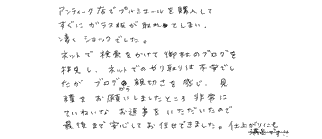 アンティーク店でプルミエールを購入して
すぐにガラス板が取れてしまい、
凄くショックでした。
ネットで検索をかけて御社のブログを
拝見し、ネットでのやり取りは不安でし
たがブログから親切さを感じ、見
積をお願いしましたところ非常に
ていねいなお返事をいただいたので
最後まで安心してお任せできました。仕上がりにも
満足です!!